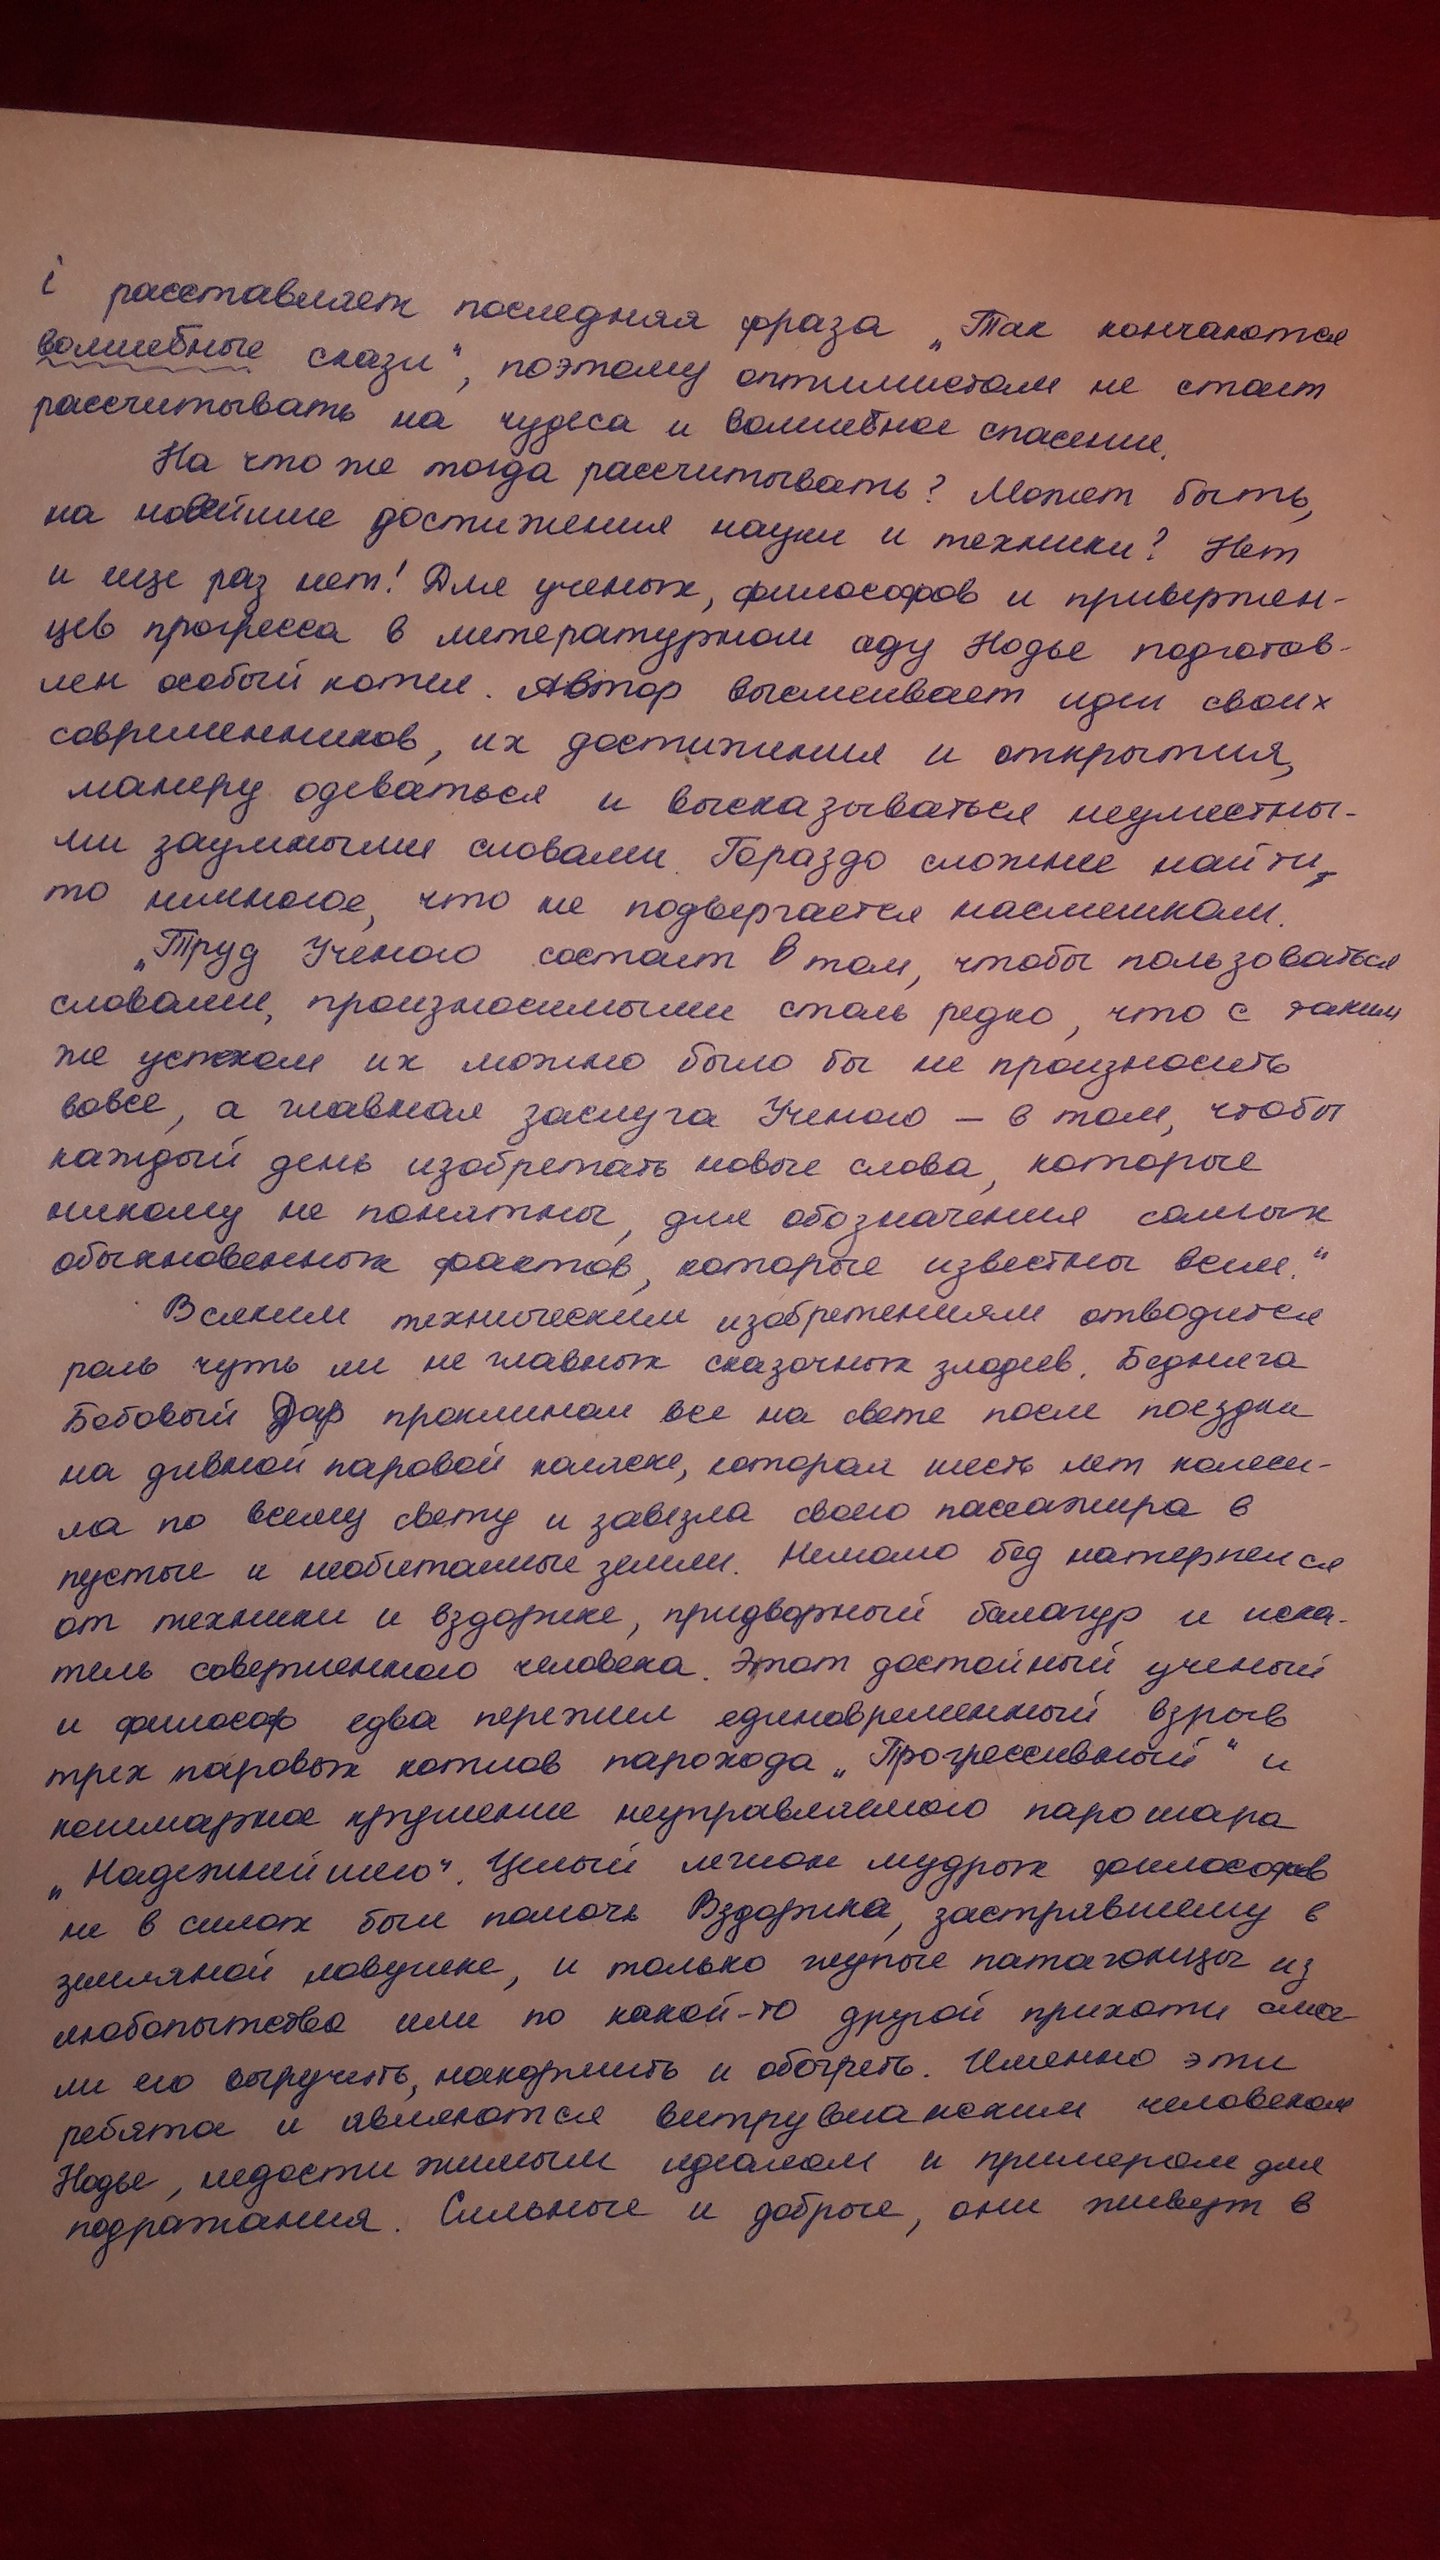 i расставляет последняя фраза „Так кончаются
волшебные скази“, поэтому оптимистам не стоит
рассчитывать на чудеса и волшебное спасение.
На что же тогда рассчитывать? Может быть,
на новейшие достижения науки и техники? Нет
и еще раз нет! Для ученых, философов и привержен-
цев прогресса в литературном аду Нодье подготов-
лен особый котел. Автор высмеивает идеи своих
современников, их достижения и открытия,
манеру одеваться и высказываться неуместны-
ми заумными словами. Гораздо сложнее найти,
то немногое, что не подвергается насмешкам.
„Труд Ученого состоит в том, чтобы пользоваться
словами, произносимыми столь редко, что с таким
же успехом их можно было бы не произносить
вовсе, а главная заслуга Ученого – в том, чтобы
каждый день изобретать новые слова, которые
никому не понятны, для обозначения самых
обыкновенных фактов, которые известны всем.“
Всяким техническим изобретениям отводится
роль чуть ли не главных сказочных злодеев. Бедняга
Бобовый Дар проклинал все на свете после поездки
на дивной паровой коляске, которая шесть лет колеси-
ла по всему свету и завезла своего пассажира в
пустые и необитаемые земли. Немало бед натерпелся
от техники и Вздорике, придворный балагур и иска-
тель совершенного человека. Этот достойный ученый
и философ едва пережил единовременный взрыв
трех паровых котлов парохода „Прогрессивный“ и
кошмарное крушение неуправляемого парошара
„Надежнейшего“. Целый легион мудрых философов
не в силах был помочь Вздорика, застрявшему в
земляной ловушке, и только глупые патагонцы из
любопытства или по какой-то другой прихоти смог-
ли его выручить, накормить и обогреть. Именно эти
ребята и являются витрувианским человеком
Нодье, недостижимым идеалом и примером для
подражания. Сильные и добрые, они живут в